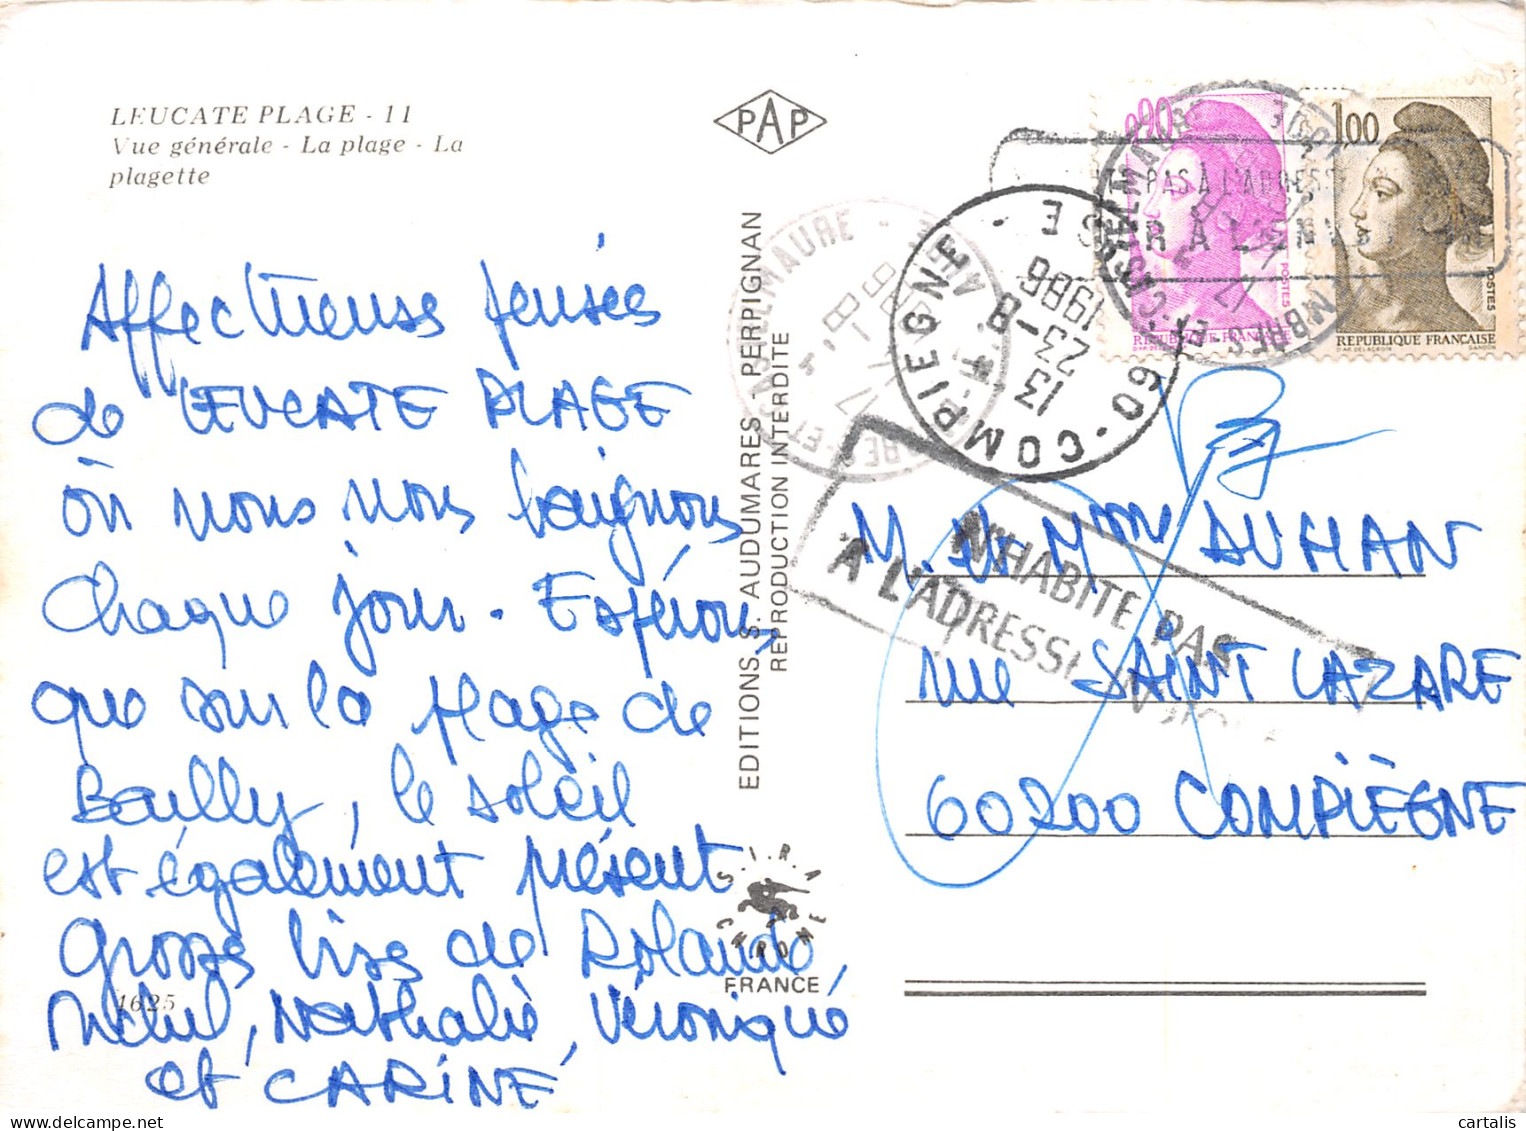 LEUCATE PLAGE - 11
Vue générale - La plage - La
plagette
PAP
Affectueuses pensées
de LEUCATE PLAGE
où nous nous baignons
chaque jour. Espérons
que sur la plage de
Bailly, le soleil
est également présent
Grosses bises de Rolande,
Michel, Nathalie, Véronique
et CARINE
4625
EDITIONS S. AUDUMARES - PERPIGNAN
REPRODUCTION INTERDITE
S.I.R.A
CHROME
FRANCE
0,90
REPUBLIQUE FRANÇAISE
POSTES
1,00
REPUBLIQUE FRANÇAISE
D'AP. DELACROIX GANDON
POSTES
60 - COMPIEGNE
13
23-8
1986
N'HABITE PAS
A L'ADRESSE
M. et Mme AUMAN
rue SAINT LAZARE
60200 COMPIÈGNE
cartalis